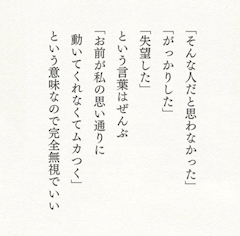 「そんな人だと思わなかった」
「がっかりした」
「失望した」
という言葉はぜんぶ
「お前が私の思い通りに
動いてくれなくてムカつく」
という意味なので完全無視でいい